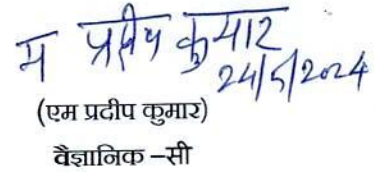 म प्रदीप कुमार
24/5/2024
(एम प्रदीप कुमार)
वैज्ञानिक –सी